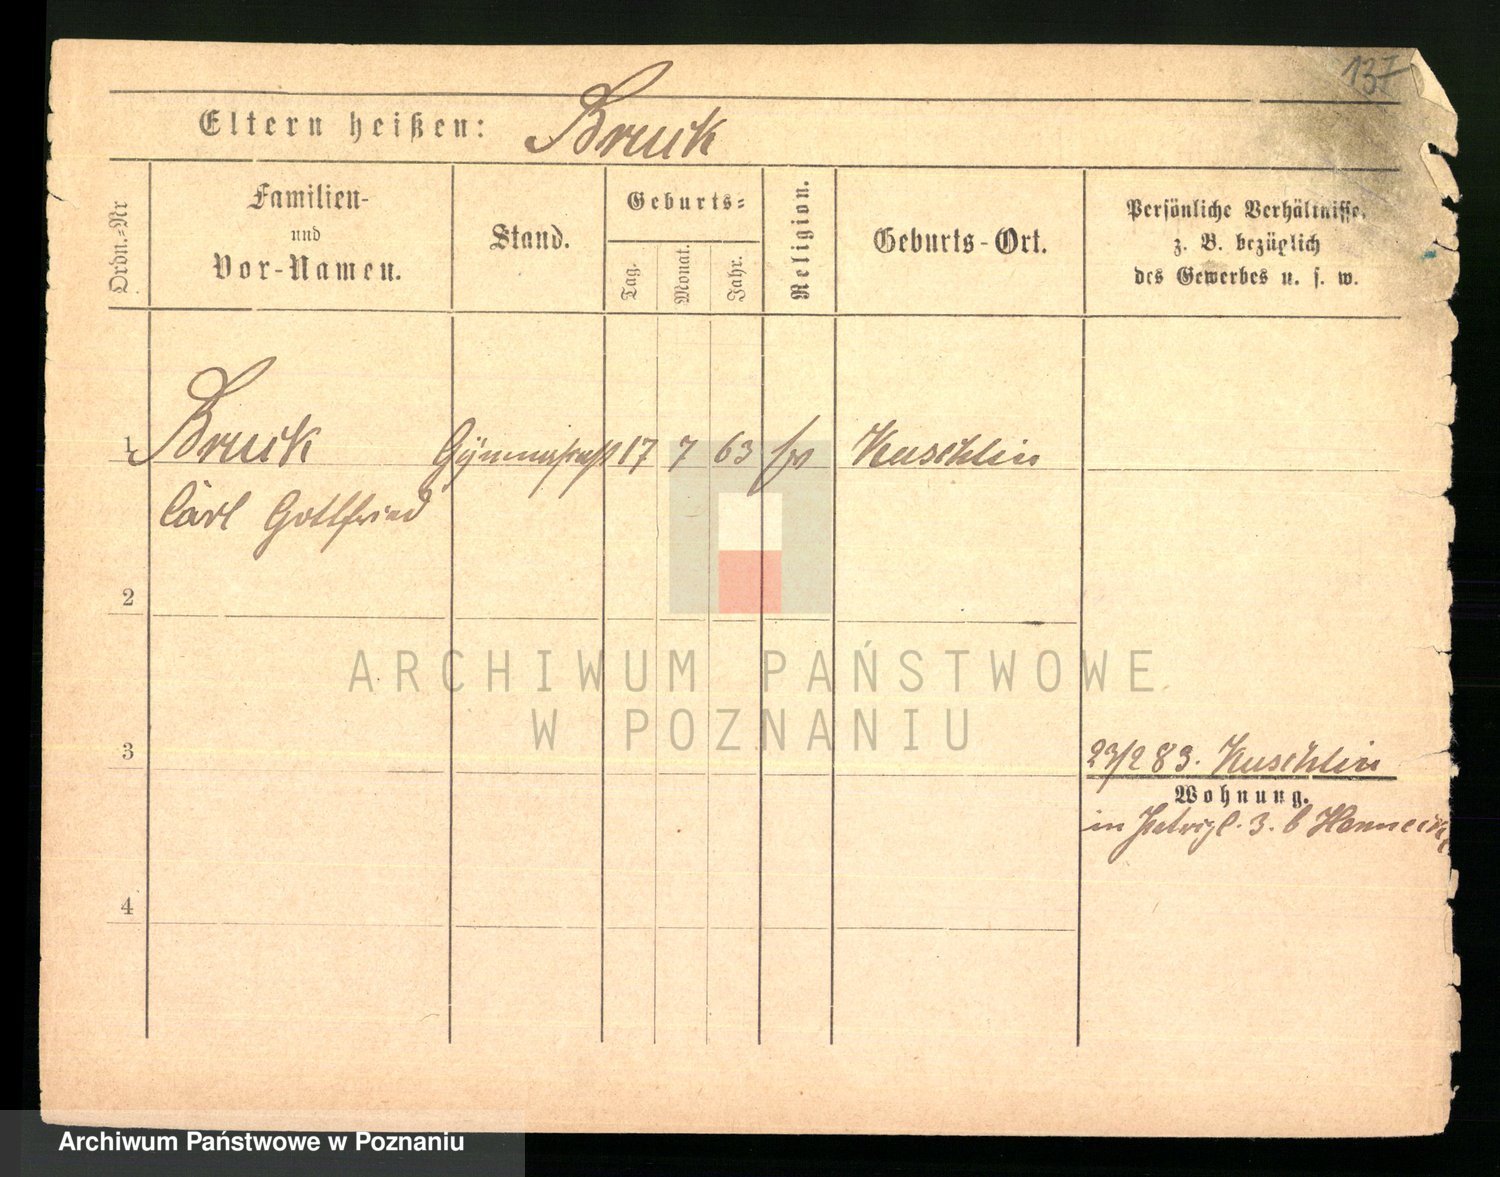 137
Eltern heißen: Bruck
Ordn.=Nr
Familien-
und
Vor-Namen.
Stand.
Geburts=
Tag.
Monat.
Jahr.
Religion.
Geburts-Ort.
Persönliche Verhältnisse,
z. B. bezüglich
des Gewerbes u. s. w.
1 Bruck 17 7 63 Kuschlin
Carl Gottfried
2
ARCHIWUM PAŃSTWOWE
W POZNANIU
3
23/2 83. Kuschlin
Wohnung.
in 3. b
4
Archiwum Państwowe w Poznaniu